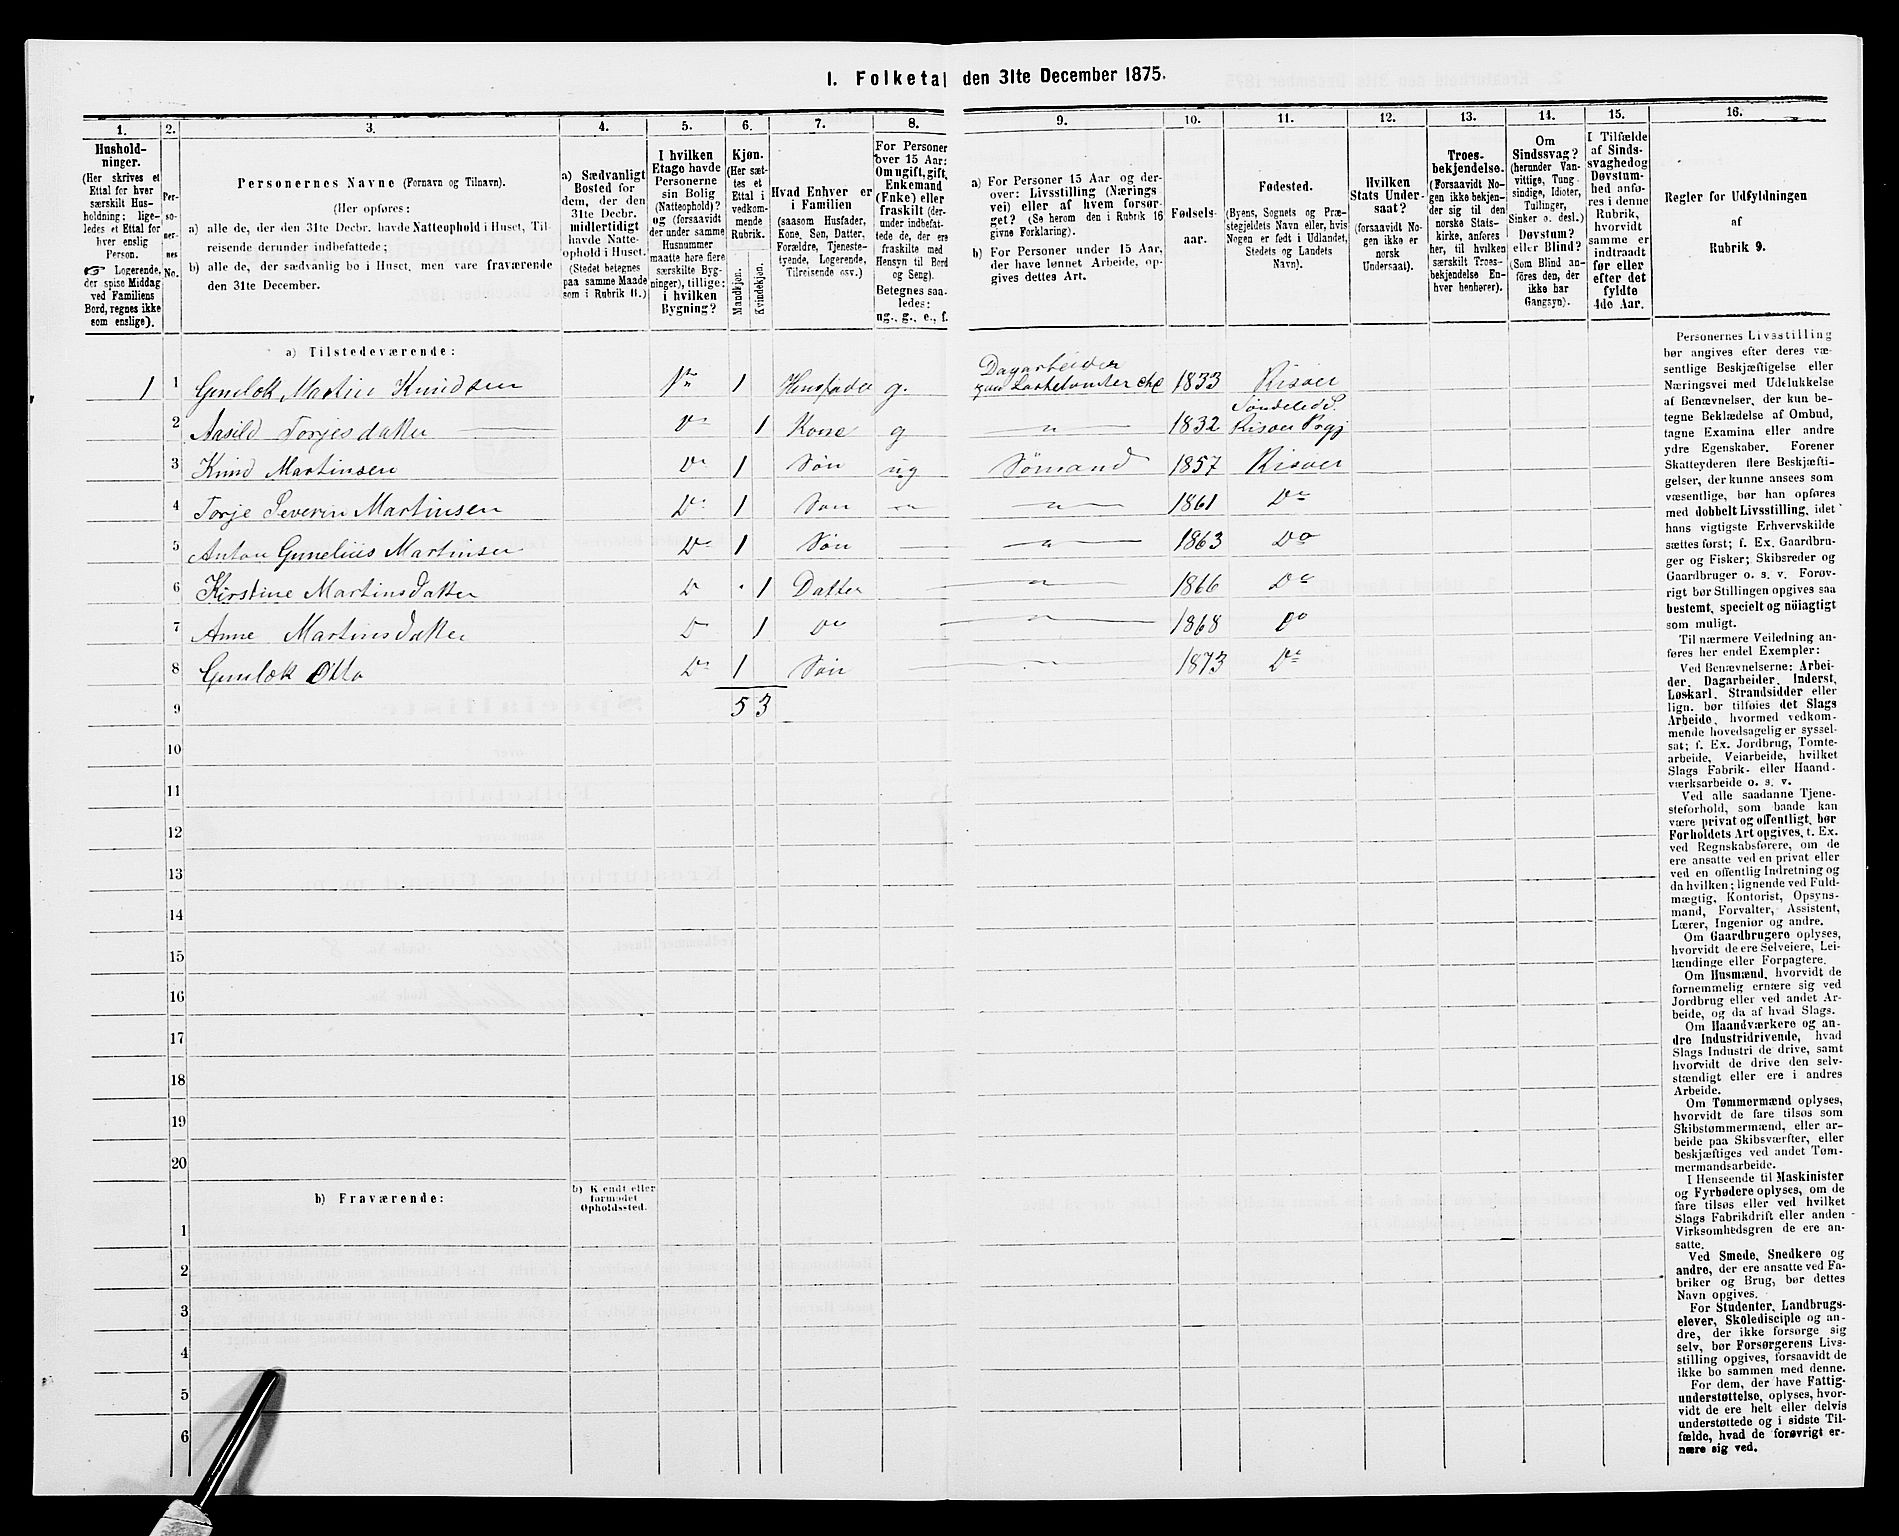 I. Folketal den 31te December 1875.
1. 2. 3. 4. 5. 6. 7. 8. 9. 10. 11. 12. 13. 14. 15. 16.
Hushold-
ninger.
(Her skrives et
Ettal for hver
særskilt Hus-
holdning; lige-
ledes et Ettal for
hver enslig
Person.
☞ Logerende,
der spise Middag
ved Familiens
Bord, regnes ikke
som enslige).
Per-
so-
ner-
nes
No.
Personernes Navne (Fornavn og Tilnavn).
(Her opføres:
a) alle de, der den 31te Decbr. havde Natteophold i Huset, Til-
reisende derunder indbefattede;
b) alle de, der sædvanlig bo i Huset, men vare fraværende
den 31te December.
a) Sædvanligt
Bosted for
dem, der den
31te Decbr.
midlertidigt
havde Natte-
ophold i Huset.
(Stedet betegnes
paa samme Maade
som i Rubrik 11.)
I hvilken
Etage havde
Personerne
sin Bolig
(Natteophold)?
og (forsaavidt
der under samme
Husnummer
maatte høre flere
særskilte Byg-
ninger), tillige:
i hvilken
Bygning?
Kjøn.
(Her sæt-
tes et
Ettal i
vedkom-
mende
Rubrik.
Mandkjøn.
Kvindekjøn.
Hvad Enhver er
i Familien
(saasom Husfader,
Kone, Søn, Datter,
Forældre, Tjeneste-
tyende, Logerende,
Tilreisende osv.)
For Personer
over 15 Aar:
Om ugift, gift,
Enkemand
(Enke) eller
fraskilt (der-
under indbefat-
tede de, der ere
fraskilte med
Hensyn til Bord
og Seng).
Betegnes saa-
ledes:
ug., g., e., f.
a) For Personer 15 Aar og der-
over: Livsstilling (Nærings
vei) eller af hvem forsør-
get? (Se herom den i Rubrik 16
givne Forklaring).
b) For Personer under 15 Aar,
der have lønnet Arbeide, op-
gives dettes Art.
Fødsels-
aar.
Fødested.
(Byens, Sognets og Præ-
stegjeldets Navn eller, hvis
Nogen er født i Udlandet,
Stedets og Landets
Navn).
Hvilken
Stats Under-
saat?
(forsaavidt No-
gen ikke er
norsk
Undersaat).
Troes-
bekjendelse.
(Forsaavidt No-
gen ikke bekjen-
der sig til den
norske Stats-
kirke, anføres
her, til hvilken
særskilt Troes-
bekjendelse En-
hver henhører).
Om
Sindssvag?
(herunder Van-
vittige, Tung-
sindige, Idioter,
Tullinger,
Sinker o. desl.)
Døvstum?
eller Blind?
(Som Blind an-
føres den, der
ikke har
Gangsyn).
I Tilfælde
af Sinds-
svaghed og
Døvstum-
hed anfø-
res i denne
Rubrik,
hvorvidt
samme er
indtraadt
før eller
efter det
fyldte
4de Aar.
Regler for Udfyldningen
af
Rubrik 9.
a) Tilstedeværende:
1 1 Gunelok Martin Knudsen 1ste 1 Husfader g. Dagarbeider 1833 Risøer
2 Aasild Torjesdatter Do 1 Kone g " 1832 Søndeled S. Risøer Prgj
3 Knud Martinsen Do 1 Søn ug Sømand 1857 Risøer
4 Torje Severin Martinsen Do 1 Søn " " 1861 Do
5 Anton Gunelius Martinsen Do 1 Søn " 1863 Do
6 Kirstine Martinsdatter D 1 Datter " 1866 Do
7 Anne Martinsdatter D 1 Do " 1868 Do
8 Gunelok Otto Do 1 Søn " 1873 Do
9 5 3
10
11
12
13
14
15
16
17
18
19
20
b) Fraværende:
b) Kjendt eller
formodet
Opholdssted.
1
2
3
4
5
6
Personernes Livsstilling
bør angives efter deres væ-
sentlige Beskjæftigelse eller
Næringsvei med Udelukkelse
af Benævnelser, der kun be-
tegne Beklædelse af Ombud,
tagne Examina eller andre
ydre Egenskaber. Forener
Skatteyderen flere Beskjæfti-
gelser, der kunne ansees som
væsentlige, bør han opføres
med dobbelt Livsstilling, idet
hans vigtigste Erhvervskilde
sættes først; f. Ex. Gaardbru-
ger og Fisker; Skibsreder og
Gaardbruger o. s. v. Forøv-
rigt bør Stillingen opgives saa
bestemt, specielt og nöiagtigt
som muligt.
Til nærmere Veiledning an-
føres her endel Exempler:
Ved Benævnelserne: Arbei-
der, Dagarbeider, Inderst,
Løskarl, Strandsidder eller
lign. bør tilføies det Slags
Arbeide, hvormed vedkom-
mende hovedsagelig er syssel-
sat; f. Ex. Jordbrug, Tomte-
arbeide, Veiarbeide, hvilket
Slags Fabrik- eller Haand-
værksarbeide o. s. v.
Ved alle saadanne Tjene-
steforhold, som baade kan
være privat og offentligt, bør
Forholdets Art opgives, t. Ex.
ved Regnskabsførere, om de
ere ansatte ved en privat eller
ved en offentlig Indretning og
da hvilken; lignende ved Fuld-
mægtig, Kontorist, Opsyns-
mand, Forvalter, Assistent,
Lærer, Ingeniør og andre.
Om Gaardbrugere oplyses,
hvorvidt de ere Selveiere, Lei-
lændinge eller Forpagtere.
Om Husmænd, hvorvidt de
fornemmelig ernære sig ved
Jordbrug eller ved andet Ar-
beide, og da af hvad Slags.
Om Haandværkere og an-
dre Industridrivende, hvad
Slags Industri de drive, samt
hvorvidt de drive den selv-
stændigt eller ere i andres
Arbeide.
Om Tømmermænd oplyses,
hvorvidt de fare tilsøs som
Skibstømmermænd, eller ar-
beide paa Skibsværfter, eller
beskjæftiges ved andet Tøm-
mermandsarbeide.
I Henseende til Maskinister
og Fyrbødere oplyses, om de
fare tilsøs eller ved hvilket
Slags Fabrikdrift eller anden
Virksomhedsgren de ere an-
satte.
Ved Smede, Snedkere og
andre, der ere ansatte ved Fa-
briker og Brug, bør dettes
Navn opgives.
For Studenter, Landbrugs-
elever, Skoledisciple og an-
dre, der ikke forsørge sig
selv, bør Forsørgerens Livs-
stilling opgives, forsaavidt de
ikke bo sammen med denne.
For dem, der have Fattig-
understøttelse, oplyses, hvor-
vidt de ere helt eller delvis
understøttede og i sidste Til-
fælde, hvad de forøvrigt er-
nære sig ved.